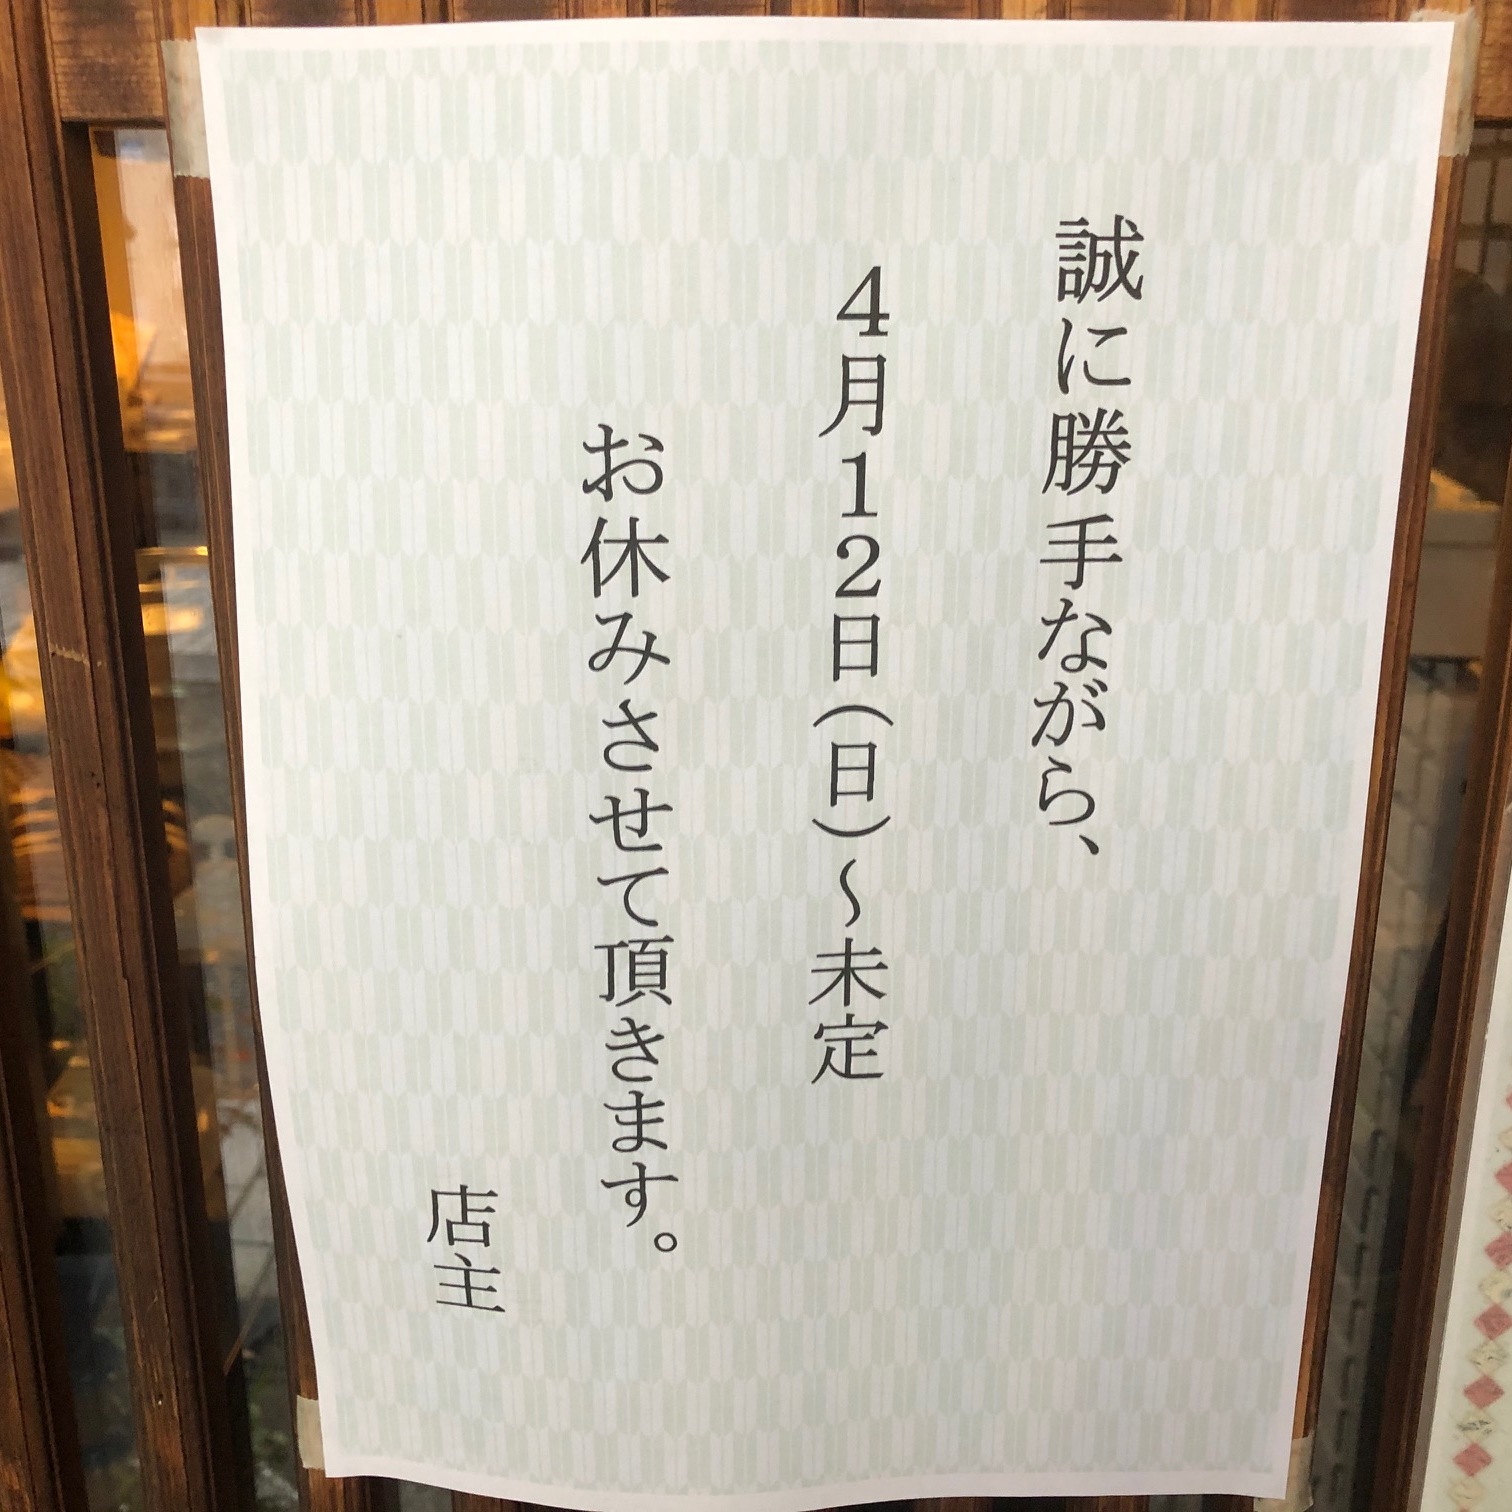 誠に勝手ながら、
４月１２日（日）～未定
お休みさせて頂きます。
店主